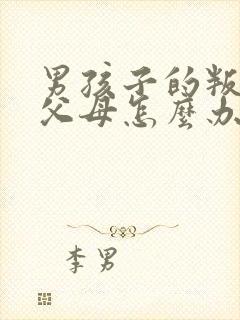 男孩子的叛
父母怎麼办
李男